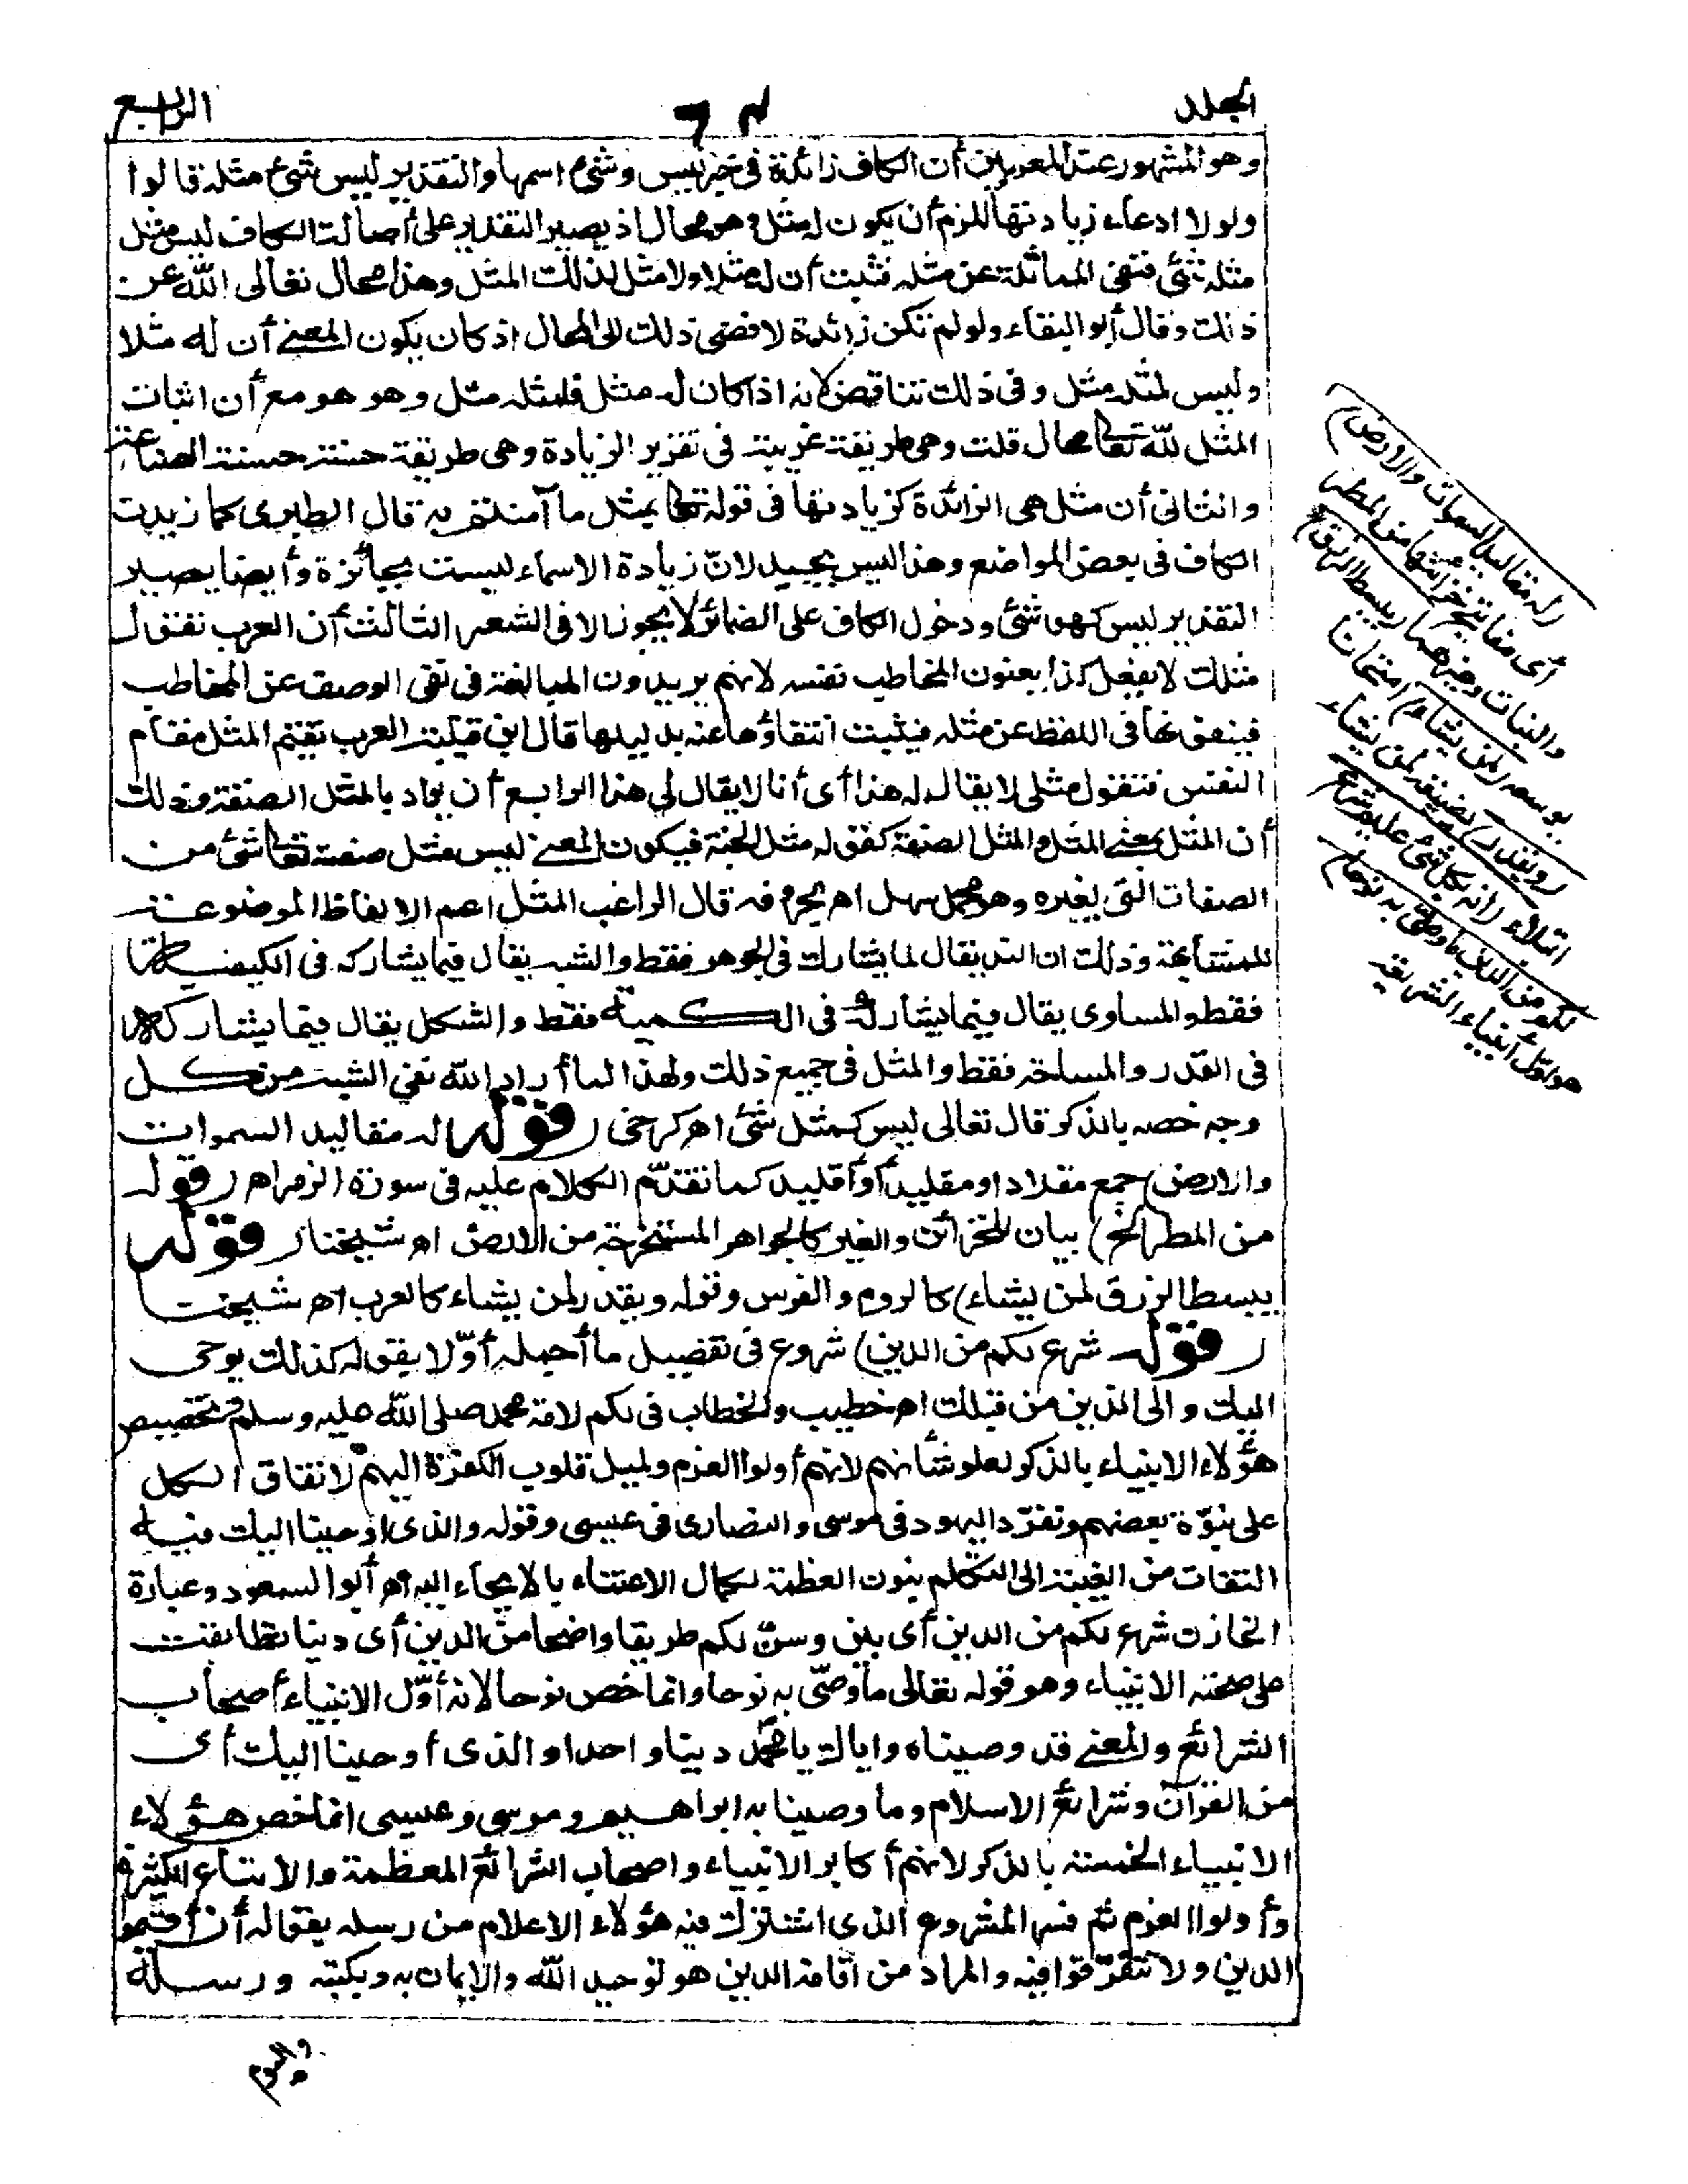 المجلد
الرابع
وهو المشهور عند المعربين أن الكاف زائدة فى خبر ليس وشئ اسمها والتقدير ليس شئ مثله قالوا
ولولا ادعاء زيادتها للزم أن يكون له مثل وهو محال اذ يصير التقدير على أصالة الكاف ليس مثل
مثله شئ فنفى المماثلة عن مثله فثبت أن له مثلا ولا مثل لذلك المثل وهذا محال تعالى الله عن
ذلك وقال أبو البقاء ولو لم تكن زائدة لافضى ذلك الى المحال اذ كان يكون المعنى أن له مثلا
وليس لمثله مثل وفى ذلك تناقض لانه اذا كان له مثل فلمثله مثل وهو هو مع أن اثبات
المثل لله تعالى محال قلت وهى طريقة غريبة فى تقرير الزيادة وهى طريقة حسنة حسنة الصناعة
والثانى أن مثل هى الزائدة كزيادتها فى قوله تعالى بمثل ما آمنتم به قال الطبرى كما زيدت
الكاف فى بعض المواضع وهذا ليس بجيد لانّ زيادة الاسماء ليست بجائزة وأيضا يصير
التقدير ليس كهو شئ ودخول الكاف على الضمائر لا يجوز الا فى الشعر الثالث أن العرب تقول
مثلك لا يفعل كذا يعنون المخاطب نفسه لانهم يريدون المبالغة فى نفى الوصف عن المخاطب
فينفونها فى اللفظ عن مثله فيثبت انتفاؤها عنه بدليلها قال ابن قتيبة العرب تقيم المثل مقام
النفس فتقول مثلى لا يقال له هذا أى أنا لا يقال لى هذا الرابع أن يراد بالمثل الصفة وذلك
أن المثل بمعنى المثل والمثل الصفة كقوله مثل الجنة فيكون المعنى ليس مثل صفته تعالى شئ من
الصفات التى لغيره وهو محمل سهل اهـ بحروفه قال الراغب المثل اعم الالفاظ الموضوعة
للمشابهة وذلك ان الند يقال لما يشارك فى الجوهر فقط والشبه يقال فيما يشاركه فى الكيفية
فقط والمساوى يقال فيما يشاركه فى الكمية فقط والشكل يقال فيما يشاركه
فى القدر والمساحة فقط والمثل فى جميع ذلك ولهذا لما أراد الله نفى الشبه من كل
وجه خصه بالذكر قال تعالى ليس كمثله شئ اهـ كرخى (قوله له مقاليد السموات
والارض) جمع مقلاد او مقليد أو أقليد كما تقدّم الكلام عليه فى سورة الزمر اهـ (قوله
من المطر الخ) بيان للخزائن والغير كالجواهر المستخرجة من الارض اهـ شيخنا (قوله
يبسط الرزق لمن يشاء) كالروم والفرس وقوله ويقدر لمن يشاء كالعرب اهـ شيخنا
(قوله شرع لكم من الدين) شروع فى تفصيل ما أجمله أوّلا بقوله كذلك يوحى
اليك والى الذين من قبلك اهـ خطيب والخطاب فى لكم لامة محمد صلى الله عليه وسلم وتخصيص
هؤلاء الانبياء بالذكر لعلو شأنهم لانهم أولوا العزم ولميل قلوب الكفرة اليهم لاتفاق الكل
على نبوّة بعضهم وتفرّد اليهود فى موسى والنصارى فى عيسى وقوله والذى اوحينا اليك فيه
التفات من الغيبة الى التكلم بنون العظمة لكمال الاعتناء بالايحاء اليه اهـ أبو السعود وعبارة
الخازن شرع لكم من الدين أى بين وسنّ لكم طريقا واضحا من الدين أى دينا تطابقت
على صحته الانبياء وهو قوله تعالى ما وصّى به نوحا وانما خص نوحا لانه أوّل الانبياء أصحاب
الشرائع والمعنى قد وصيناه واياك يا محمد دينا واحدا والذى أوحينا اليك أى
من القرآن وشرائع الاسلام وما وصينا به ابراهيم وموسى وعيسى انما خص هؤلاء
الانبياء الخمسة بالذكر لانهم أكابر الانبياء واصحاب الشرائع المعظمة والأتباع الكثيرة
وأولوا العزم ثم فسر المشروع الذى اشترك فيه هؤلاء الاعلام من رسله بقوله أن أقيموا
الدين ولا تتفرّقوا فيه والمراد من اقامة الدين هو توحيد الله والايمان به وبكتبه ورسله
واليوم
(له مقاليد السموات والارض)
أى مفاتيح خزائنهما من المطر
والنبات وغيرهما (يبسط الرزق)
يوسعه (لمن يشاء) امتحانا
(ويقدر) يضيقه لمن يشاء
ابتلاء (انه بكل شئ عليم شرع
لكم من الدين ما وصّى به نوحا)
هو اوّل أنبياء الشريعة